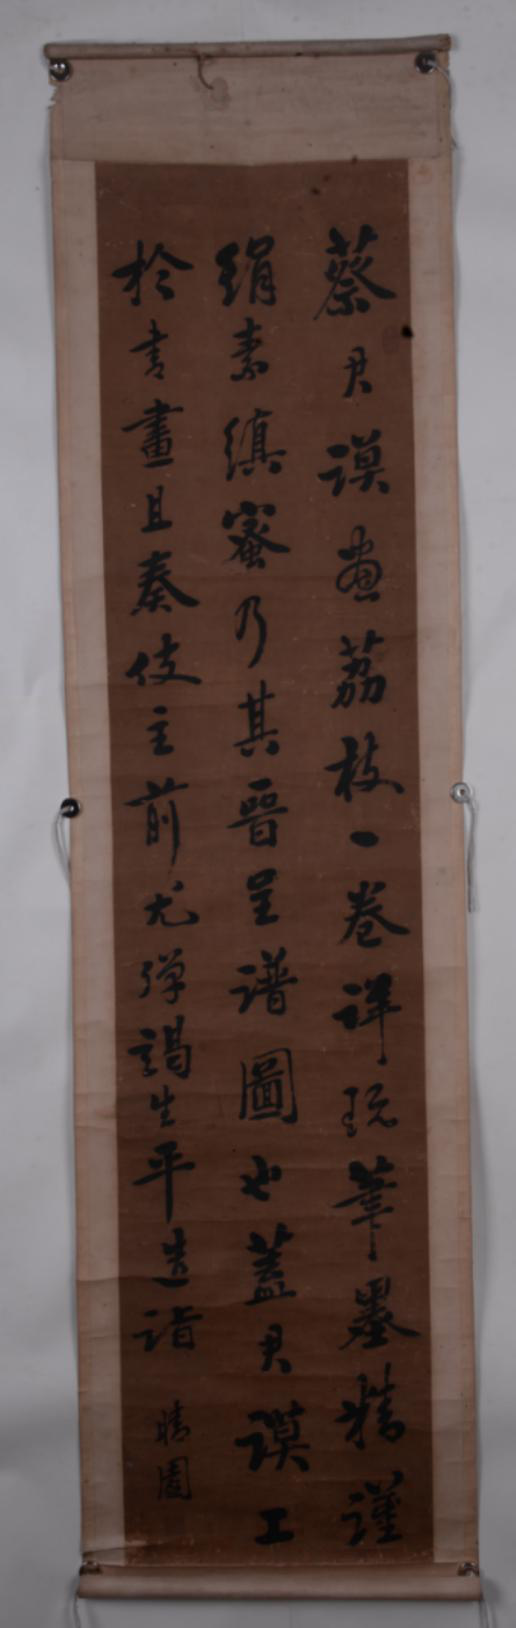 蔡君謨畫荔枝一卷詳玩筆墨精謹
絹素縝蜜乃其晉呈譜圖也蓋君謨工
於書畫且奏伎主前尤彈謁生平造詣
晴園